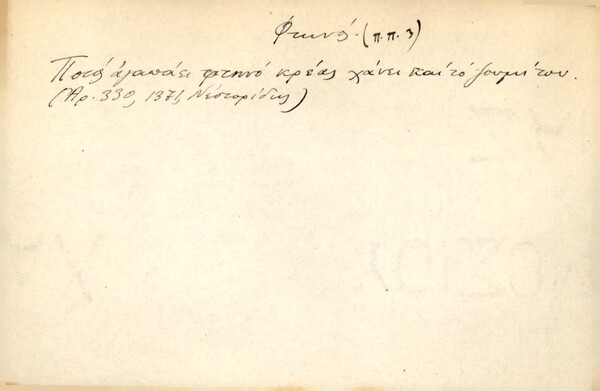 Φτηνός (π.π. 3)
Ποιός ἀγαπάει φτηνό κρέας χάνει καί τό ζουμί του.
(Ἀρ. 330, 1371, Νεστορίδης)